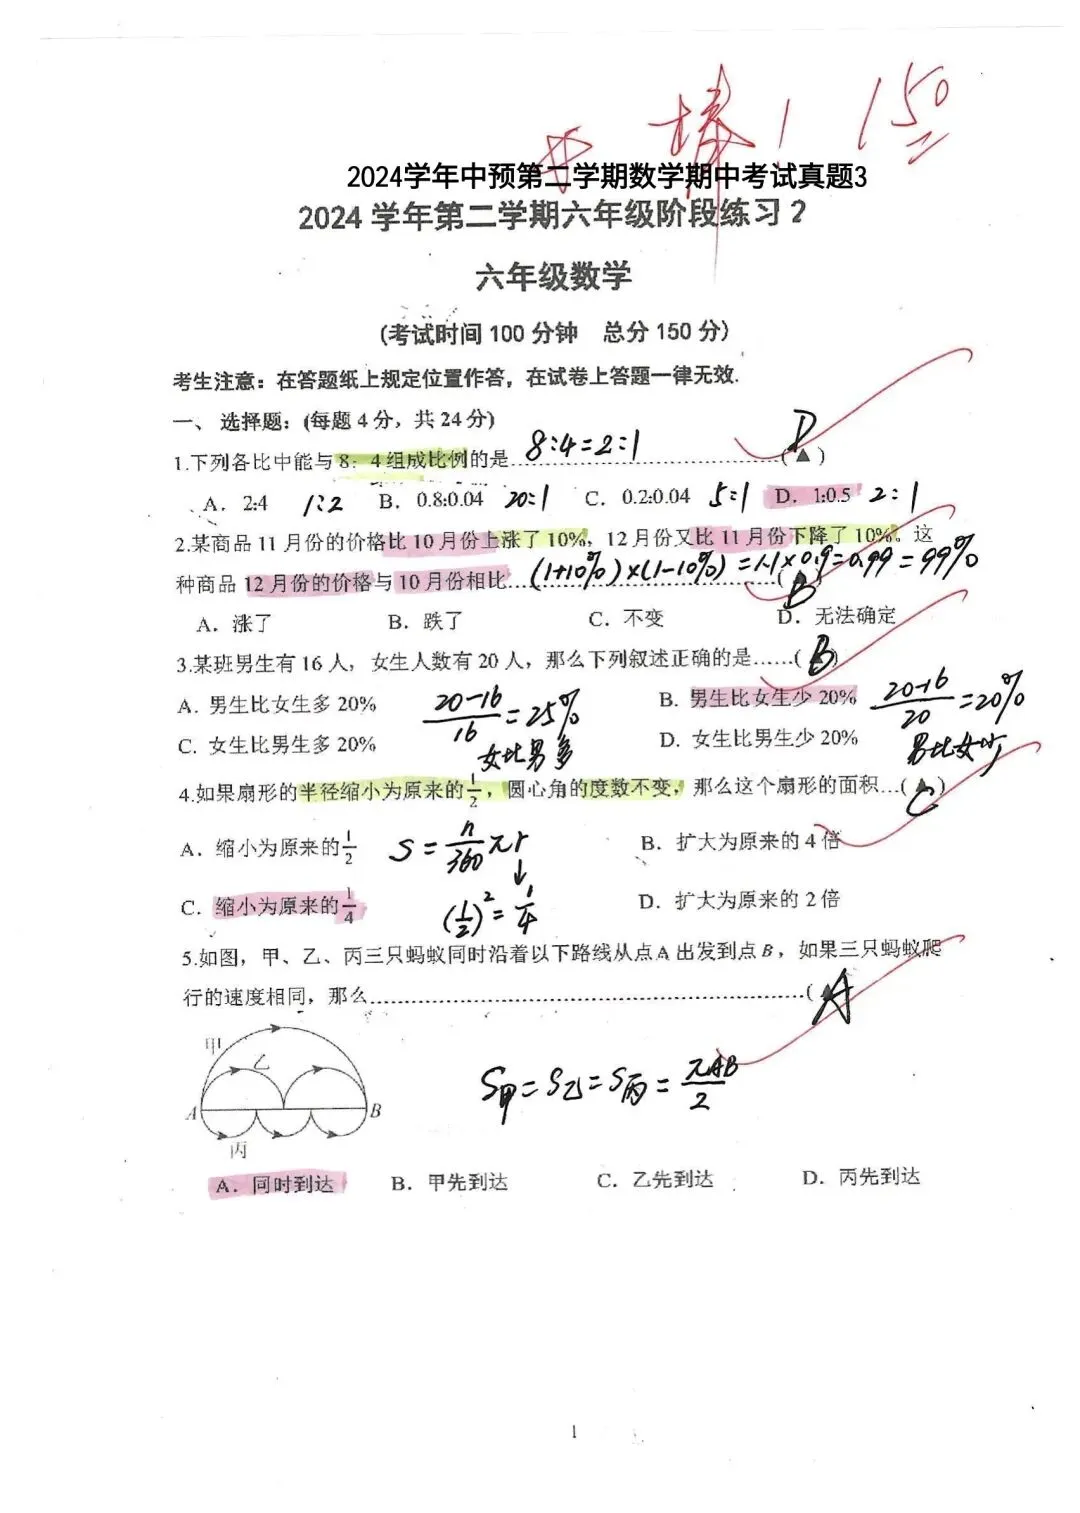 棒！ 150
2024学年中预第二学期数学期中考试真题3
2024 学年第二学期六年级阶段练习 2
六年级数学
(考试时间 100 分钟 总分 150 分)
考生注意：在答题纸上规定位置作答，在试卷上答题一律无效.
一、 选择题：(每题 4 分，共 24 分)
1.下列各比中能与 8：4 组成比例的是 8:4=2:1 ……(▲) D
A. 2:4 1:2 B. 0.8:0.04 20:1 C. 0.2:0.04 5:1 D. 1:0.5 2:1
2.某商品 11 月份的价格比 10 月份上涨了 10%，12 月份又比 11 月份下降了 10%。这
种商品 12 月份的价格与 10 月份相比…(1+10%)×(1-10%)=1.1×0.9=0.99=99% (▲) B
A. 涨了 B. 跌了 C. 不变 D. 无法确定
3.某班男生有 16 人，女生人数有 20 人，那么下列叙述正确的是……(▲) B
A. 男生比女生多 20% 20-16/16=25% B. 男生比女生少 20% 20-16/20=20%
C. 女生比男生多 20% 女比男多 D. 女生比男生少 20% 男比女少
4.如果扇形的半径缩小为原来的1/2，圆心角的度数不变，那么这个扇形的面积…(▲) C
A. 缩小为原来的1/2 S=n/360πr B. 扩大为原来的 4 倍
C. 缩小为原来的1/4 (1/2)²=1/4 D. 扩大为原来的 2 倍
5.如图，甲、乙、丙三只蚂蚁同时沿着以下路线从点 A 出发到点 B，如果三只蚂蚁爬
行的速度相同，那么……(▲) A
甲
乙
A B
丙
S甲=S乙=S丙=πAB/2
A. 同时到达 B. 甲先到达 C. 乙先到达 D. 丙先到达
1